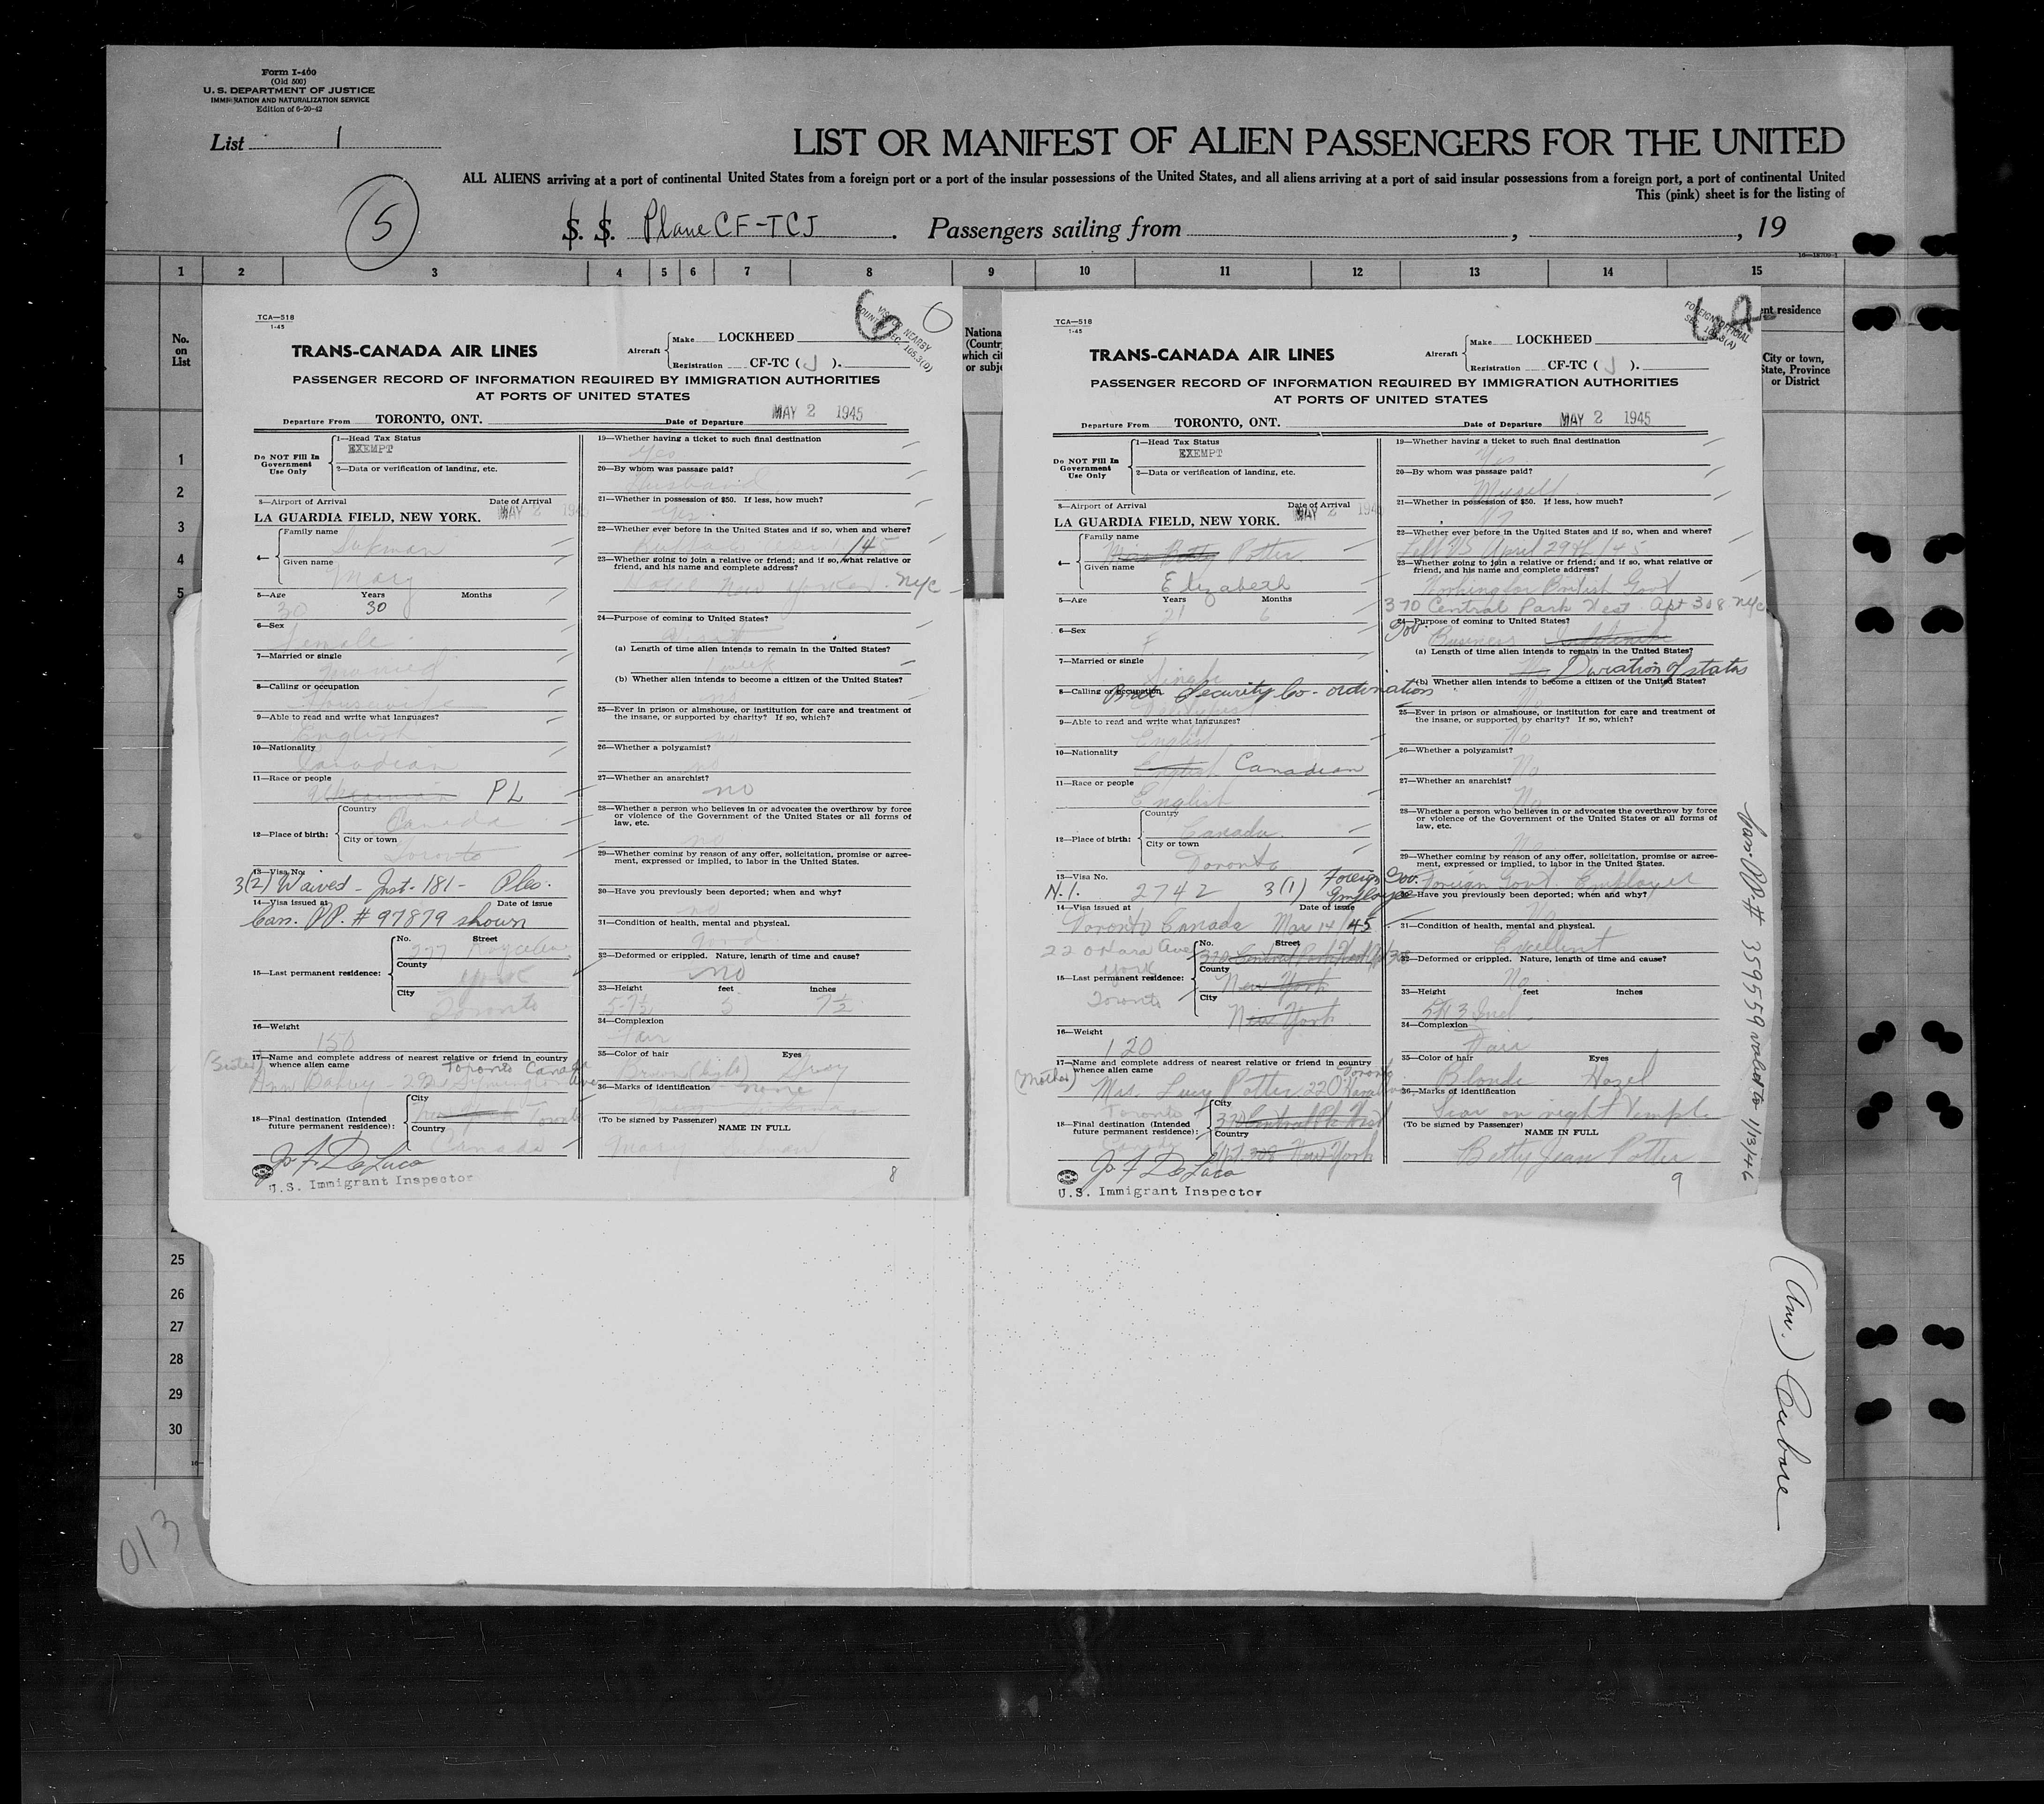 Form I-400
(Old 500)
U. S. DEPARTMENT OF JUSTICE
IMMIGRATION AND NATURALIZATION SERVICE
Edition of 6-20-42
List 1
LIST OR MANIFEST OF ALIEN PASSENGERS FOR THE UNITED
ALL ALIENS arriving at a port of continental United States from a foreign port or a port of the insular possessions of the United States, and all aliens arriving at a port of said insular possessions from a foreign port, a port of continental United
This (pink) sheet is for the listing of
5
S. S. Plane CF-TCJ. Passengers sailing from , , 19
1 2 3 4 5 6 7 8 9 10 11 12 13 14 15
No.
on
List
1
2
3
4
5
25
26
27
28
29
30
013
TCA—518
1-45
TRANS-CANADA AIR LINES
Aircraft
Make LOCKHEED
Registration CF-TC ( J ).
PASSENGER RECORD OF INFORMATION REQUIRED BY IMMIGRATION AUTHORITIES
AT PORTS OF UNITED STATES
Departure From TORONTO, ONT. Date of Departure MAY 2 1945
Do NOT Fill In
Government
Use Only
1—Head Tax Status
EXEMPT
2—Data or verification of landing, etc.
3—Airport of Arrival Date of Arrival
LA GUARDIA FIELD, NEW YORK. MAY 2 1945
4— Family name
Given name
Mary
5—Age Years Months
30 30
6—Sex
Female
7—Married or single
Married
8—Calling or occupation
Housewife
9—Able to read and write what languages?
English
10—Nationality
Canadian
11—Race or people
Ukrainian PL
12—Place of birth:
Country
Canada
City or town
Toronto
13—Visa No.
3(2) Waived - Inst. 181 -
14—Visa issued at Date of issue
Can. PP. # 97879 shown
15—Last permanent residence:
No. Street
277
County
York
City
Toronto
16—Weight
150
17—Name and complete address of nearest relative or friend in country
whence alien came
(Sister) Toronto Canada
18—Final destination (Intended
future permanent residence):
City
New York Toronto
Country
Canada
U.S. Immigrant Inspector
19—Whether having a ticket to such final destination
yes
20—By whom was passage paid?
Husband
21—Whether in possession of $50. If less, how much?
yes
22—Whether ever before in the United States and if so, when and where?
23—Whether going to join a relative or friend; and if so, what relative or
friend, and his name and complete address?
Hotel New Yorker. NYC
24—Purpose of coming to United States?
Visit
(a) Length of time alien intends to remain in the United States?
1 week
(b) Whether alien intends to become a citizen of the United States?
no
25—Ever in prison or almshouse, or institution for care and treatment of
the insane, or supported by charity? If so, which?
no
26—Whether a polygamist?
no
27—Whether an anarchist?
no
28—Whether a person who believes in or advocates the overthrow by force
or violence of the Government of the United States or all forms of
law, etc.
no
29—Whether coming by reason of any offer, solicitation, promise or agree-
ment, expressed or implied, to labor in the United States.
30—Have you previously been deported; when and why?
no
31—Condition of health, mental and physical.
good
32—Deformed or crippled. Nature, length of time and cause?
no
33—Height feet inches
5 7½
34—Complexion
Fair
35—Color of hair Eyes
Brown (light) Gray
36—Marks of identification none
(To be signed by Passenger)
NAME IN FULL
Mary
8
TCA—518
1-45
TRANS-CANADA AIR LINES
Aircraft
Make LOCKHEED
Registration CF-TC ( J ).
PASSENGER RECORD OF INFORMATION REQUIRED BY IMMIGRATION AUTHORITIES
AT PORTS OF UNITED STATES
Departure From TORONTO, ONT. Date of Departure MAY 2 1945
Do NOT Fill In
Government
Use Only
1—Head Tax Status
EXEMPT
2—Data or verification of landing, etc.
3—Airport of Arrival Date of Arrival
LA GUARDIA FIELD, NEW YORK. MAY 2 1945
4— Family name
Miss Betty Potter
Given name
Elizabeth
5—Age Years Months
21 6
6—Sex
F
7—Married or single
Single
8—Calling or occupation
Brit. Security Co-ordination
9—Able to read and write what languages?
English
10—Nationality
English Canadian
11—Race or people
English
12—Place of birth:
Country
Canada
City or town
Toronto
13—Visa No.
N.I. 2742 3(1) Foreign Gov. Employee
14—Visa issued at Date of issue
Toronto Canada Mar 14/45
15—Last permanent residence:
22 O'Hara Ave
York
Toronto
No. Street
370 Central Park West Apt 308
County
New York
City
New York
16—Weight
120
17—Name and complete address of nearest relative or friend in country
whence alien came
(Mother) Mrs. Lucy Potter 22 O'Hara Toronto
18—Final destination (Intended
future permanent residence):
Toronto
Canada
City
370 Central Pk West
Country
Apt. 308 New York
U.S. Immigrant Inspector
19—Whether having a ticket to such final destination
Yes
20—By whom was passage paid?
Myself
21—Whether in possession of $50. If less, how much?
22—Whether ever before in the United States and if so, when and where?
Left US April 29th/45
23—Whether going to join a relative or friend; and if so, what relative or
friend, and his name and complete address?
Working for British Govt
370 Central Park West. Apt 308 NYC
24—Purpose of coming to United States?
Gov. Business
(a) Length of time alien intends to remain in the United States?
Duration of status
(b) Whether alien intends to become a citizen of the United States?
No
25—Ever in prison or almshouse, or institution for care and treatment of
the insane, or supported by charity? If so, which?
No
26—Whether a polygamist?
No
27—Whether an anarchist?
No
28—Whether a person who believes in or advocates the overthrow by force
or violence of the Government of the United States or all forms of
law, etc.
No
29—Whether coming by reason of any offer, solicitation, promise or agree-
ment, expressed or implied, to labor in the United States.
Foreign Govt. Employee
30—Have you previously been deported; when and why?
No
31—Condition of health, mental and physical.
Excellent
32—Deformed or crippled. Nature, length of time and cause?
No
33—Height feet inches
5ft 3 Inch.
34—Complexion
Fair
35—Color of hair Eyes
Blonde Hazel
36—Marks of identification
Scar on right Temple
(To be signed by Passenger)
NAME IN FULL
Betty Jean Potter
9
Can. PP. # 359559 valid to 1/13/46
City or town,
State, Province
or District